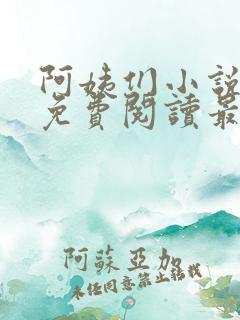 阿姨们小説
免費閱讀最
阿蘇亞加
未经同意禁止转载